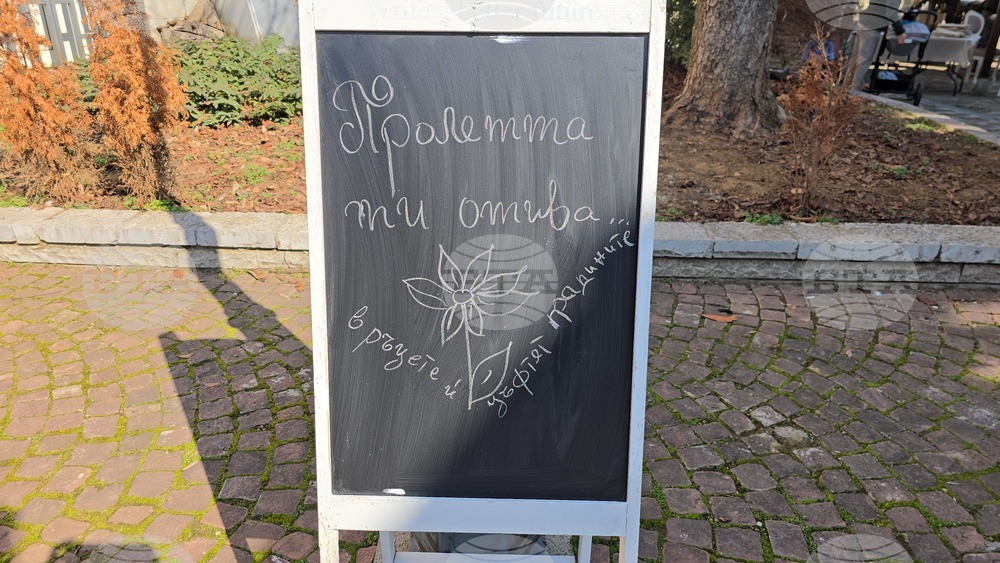 Пролетта
ти отива...
в ръцете ѝ
цъфтят градините
BTA
BTA